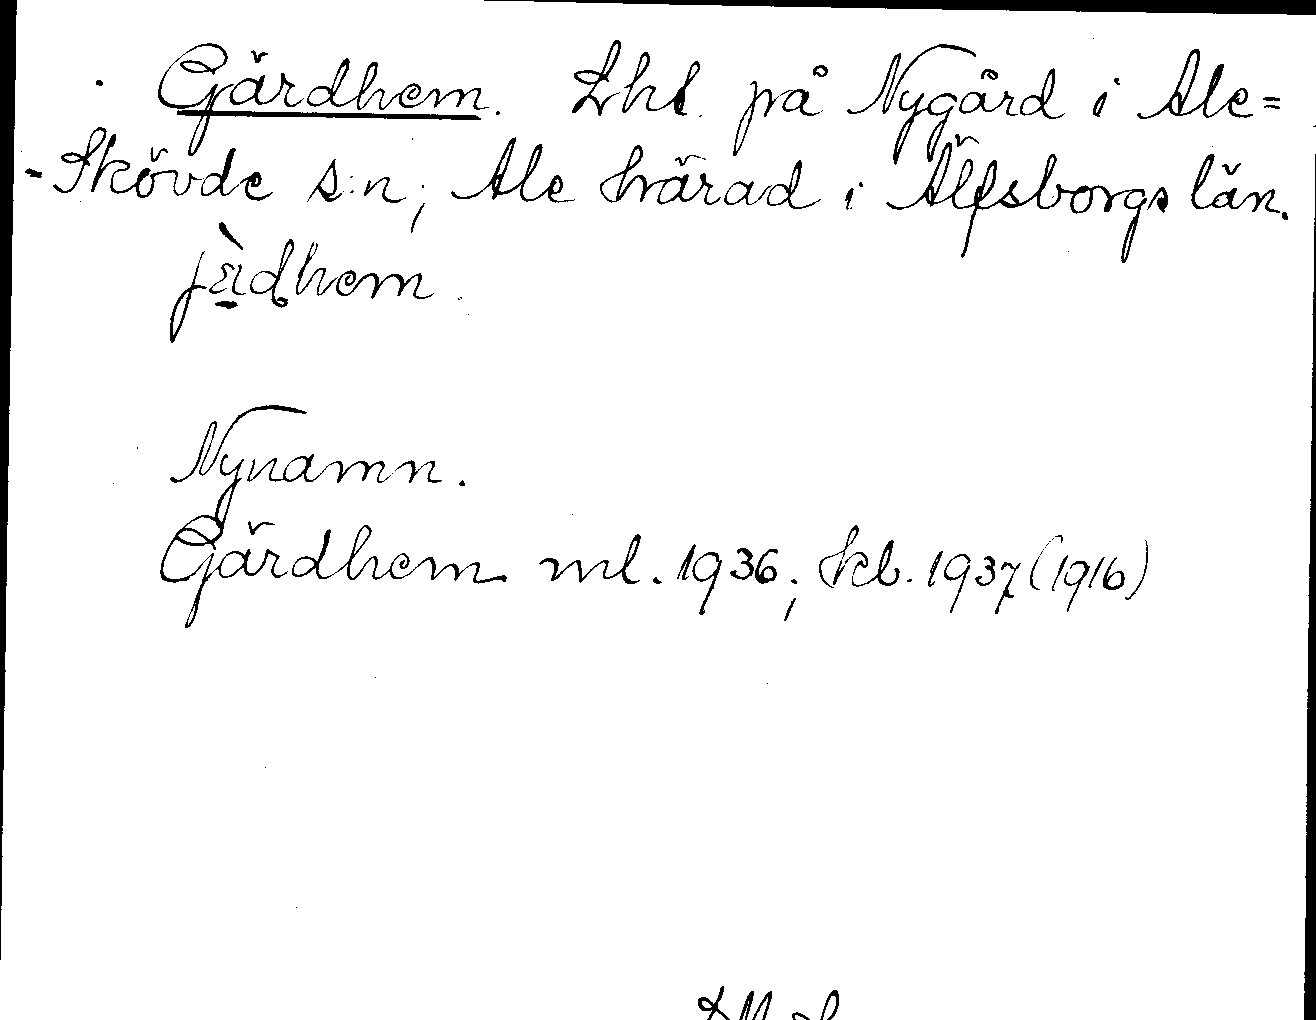 Gärdhem. Lht på Nygård i Ale=
-Skövde s:n, Ale härad i Älfsborgs län.
jàdhem.
Nynamn.
Gärdhem ml. 1936, kb. 1937 (1916)